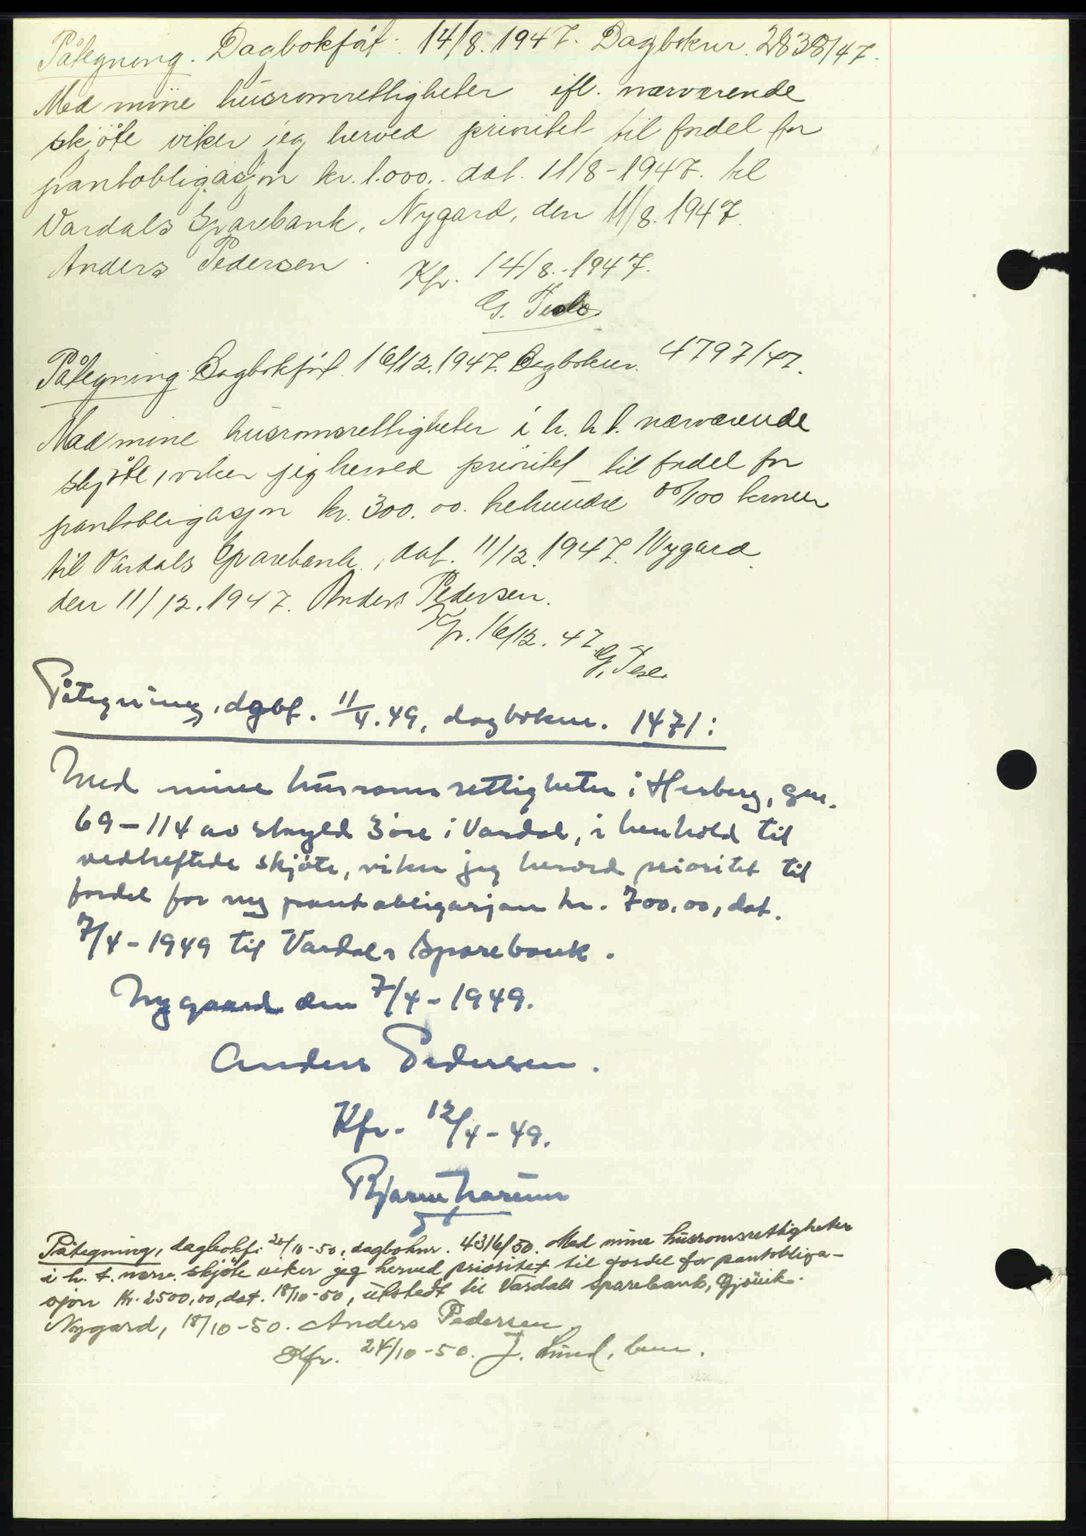 Påtegning. Dagbokført 14/8. 1947. Dagboknr. 2838/47.
Med mine husromrettigheter ifl. nærværende
skjøte viker jeg herved prioritet til fordel for
pantobligasjon kr. 1.000,. dat. 11/8-1947. til
Vardals Sparebank. Nygard, den 11/8. 1947.
Anders Pedersen. Kfr. 14/8.-1947.
G.
Påtegning. Dagbokført 16/12. 1947. Dagboknr. 4797/47.
Med mine husromsrettigheter i h. h. t. nærværende
skjøte, viker jeg herved prioritet til fordel for
pantobligasjon kr. 300.00. trehundre 00/100 kroner
til Vardals Sparebank, dat. 11/12. 1947. Nygard
den 11/12. 1947. Anders Pedersen.
Kfr. 16/12. 47.
G.
Påtegning, dgbf. 11/4.49, dagboknr. 1471:
Med mine husromsrettigheter i Herberg, gnr.
69-114 av skyld 3 øre i Vardal, i henhold til
vedheftede skjøte, viker jeg herved prioritet til
fordel for ny pantobligasjon kr. 700,00, dat.
7/4-1949 til Vardals Sparebank.
Nygaard den 7/4-1949.
Anders Pedersen.
Kfr. 12/4-49.
Bjarne
Påtegning, dagbokf. 24/10-50, dagboknr. 4316/50. Med mine husromsrettigheter
i h. t. nærv. skjøte viker jeg herved prioritet til fordel for pantobliga-
sjon kr. 2500,00, dat. 18/10-50, utstedt til Vardals Sparebank, Gjøvik.
Nygard, 18/10-50. Anders Pedersen
Kfr. 24/10-50. J. Lund,